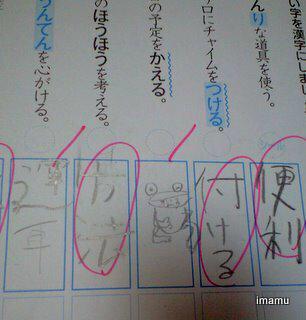 い字を漢字にしまし
んりな道具を使う。
ロにチャイムをつける。
の予定をかえる。
のほうほうを考える。
うんてんを心がける。
便利
付ける
方法
運
imamu